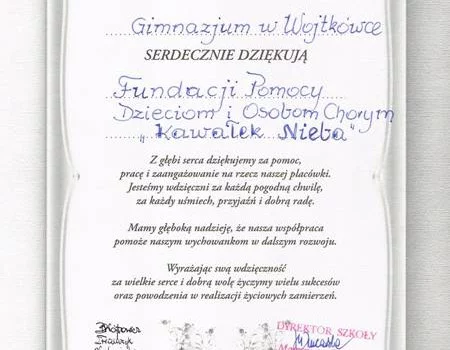 Gimnazjum w Wojtkówce
SERDECZNIE DZIĘKUJĄ
Fundacji Pomocy
Dzieciom i Osobom Chorym
"Kawałek Nieba"
Z głębi serca dziękujemy za pomoc,
pracę i zaangażowanie na rzecz naszej placówki.
Jesteśmy wdzięczni za każdą pogodną chwilę,
za każdy uśmiech, przyjaźń i dobrą radę.
Mamy głęboką nadzieję, że nasza współpraca
pomoże naszym wychowankom w dalszym rozwoju.
Wyrażając swą wdzięczność
za wielkie serce i dobrą wolę życzymy wielu sukcesów
oraz powodzenia w realizacji życiowych zamierzeń.
DYREKTOR SZKOŁY